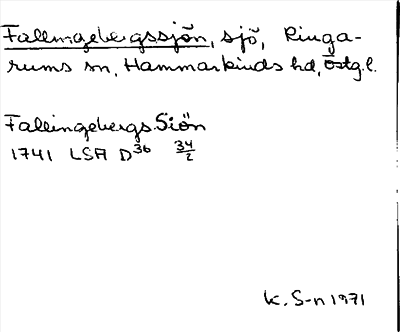 Fallingebergssjön, sjö, Ringa-
rums sn, Hammarkinds hd, Östg.l.
Fallingebergs Siön
1741 LSA D36 34/2
K. S-n 1971